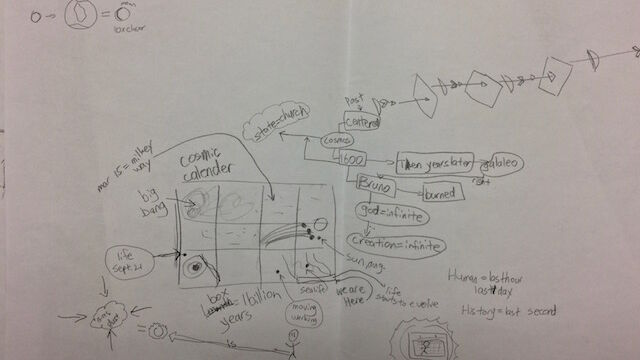 =
state=church
Past
centered
cosmos
1600
Ten years later
galaleo
right
Bruno
burned
god=infinite
creation=infinite
mar 15 = milkey
way
cosmic
calender
big
bang
life
sept. 21
box
1 billion
years
sealife
moving
working
we are
Here
life
starts to evolve
Human = last hour
last day
History = last second
=
is